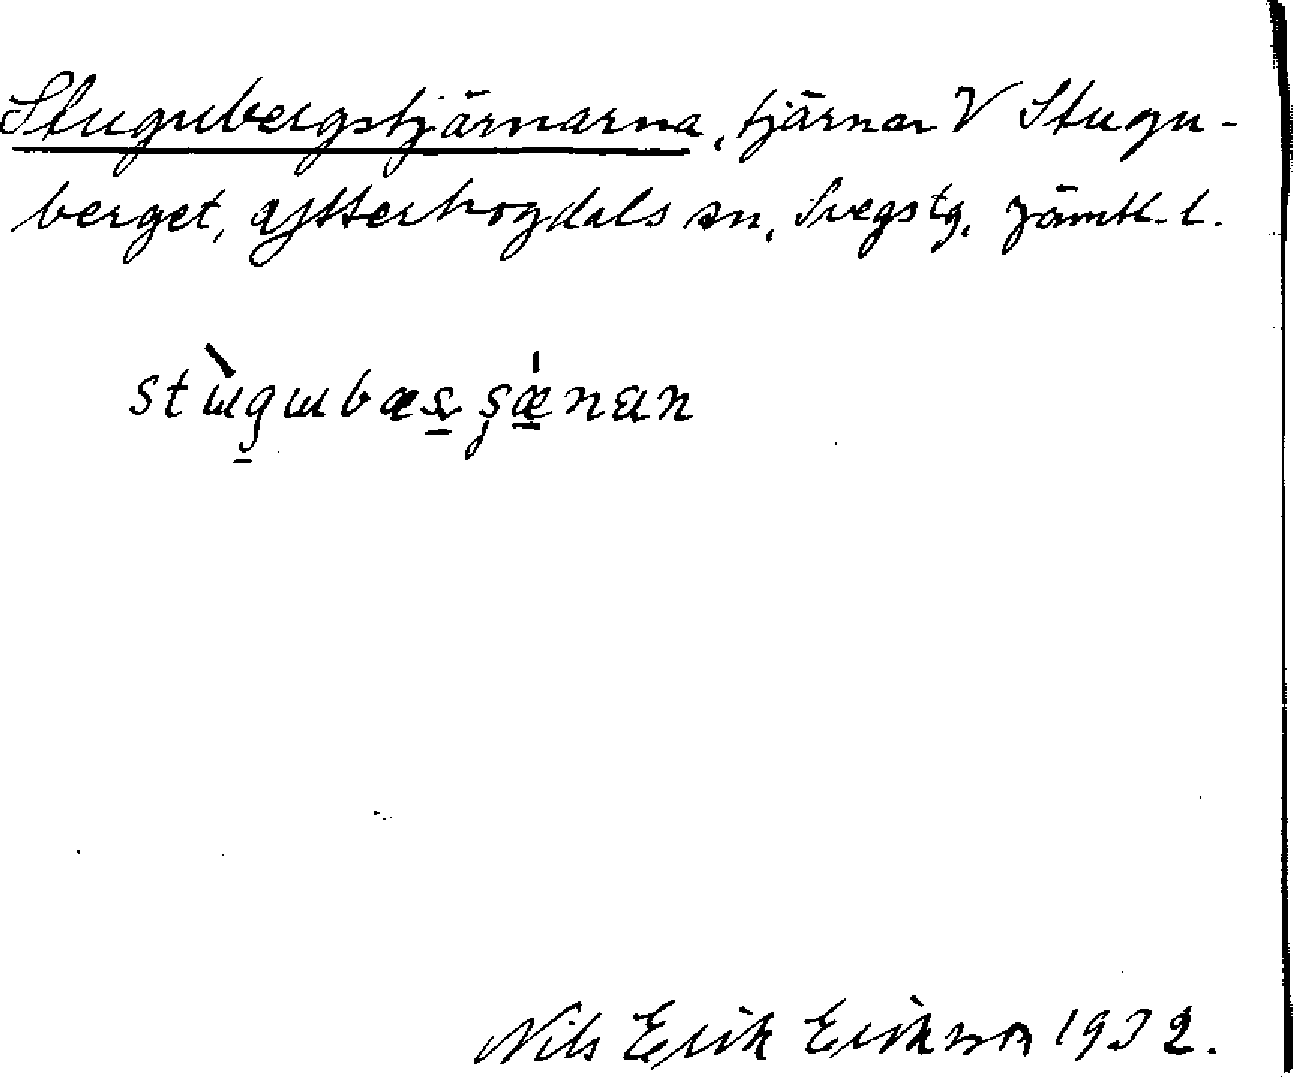 Stugubergstjärnarna, tjärnar V Stugu-
berget, Ytterhogdals sn, Svegs tg. Jämtl. l.
stɯ̀gɯbæʂʂǽnan
Nils Erik Erikson 1932.